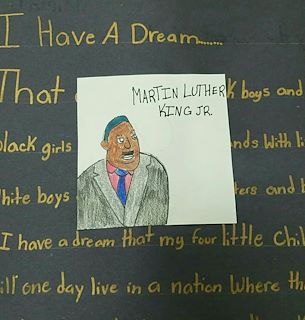 I Have A Dream......
That
MARTIN LUTHER
KING JR.
k boys and
black girls
nds with li
hite boys
ters and b
I have a dream that my four little chil
ill one day live in a nation where th